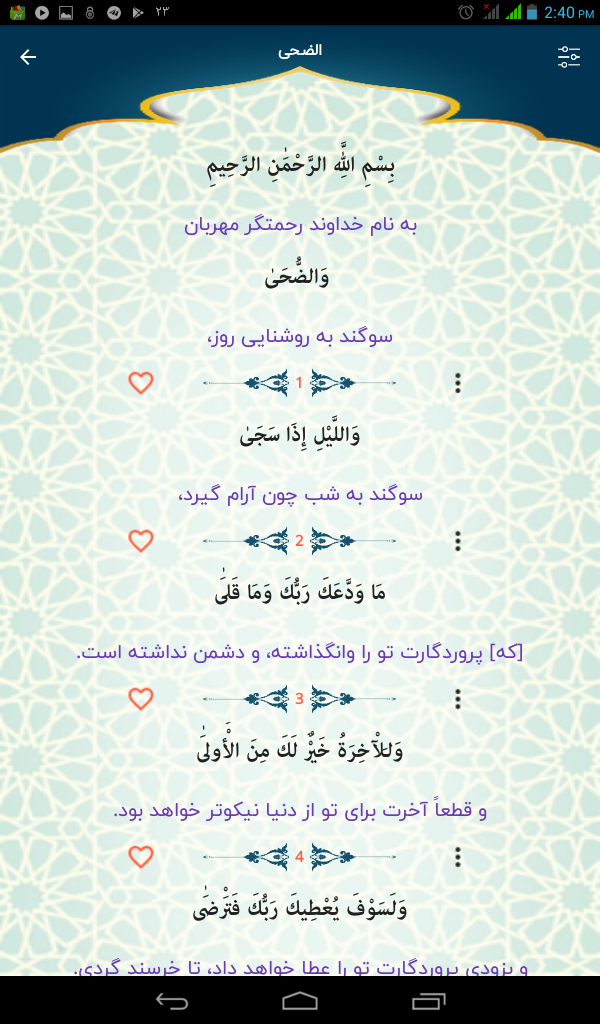 ۲۳
2:40 PM
الضحى
بِسْمِ اللَّهِ الرَّحْمَٰنِ الرَّحِيمِ
به نام خداوند رحمتگر مهربان
وَالضُّحَىٰ
سوگند به روشنایی روز،
1
وَاللَّيْلِ إِذَا سَجَىٰ
سوگند به شب چون آرام گیرد،
2
مَا وَدَّعَكَ رَبُّكَ وَمَا قَلَىٰ
[که] پروردگارت تو را وانگذاشته، و دشمن نداشته است.
3
وَلَلْآخِرَةُ خَيْرٌ لَكَ مِنَ الْأُولَىٰ
و قطعاً آخرت برای تو از دنیا نیکوتر خواهد بود.
4
وَلَسَوْفَ يُعْطِيكَ رَبُّكَ فَتَرْضَىٰ
و بزودی پروردگارت تو را عطا خواهد داد، تا خرسند گردی.